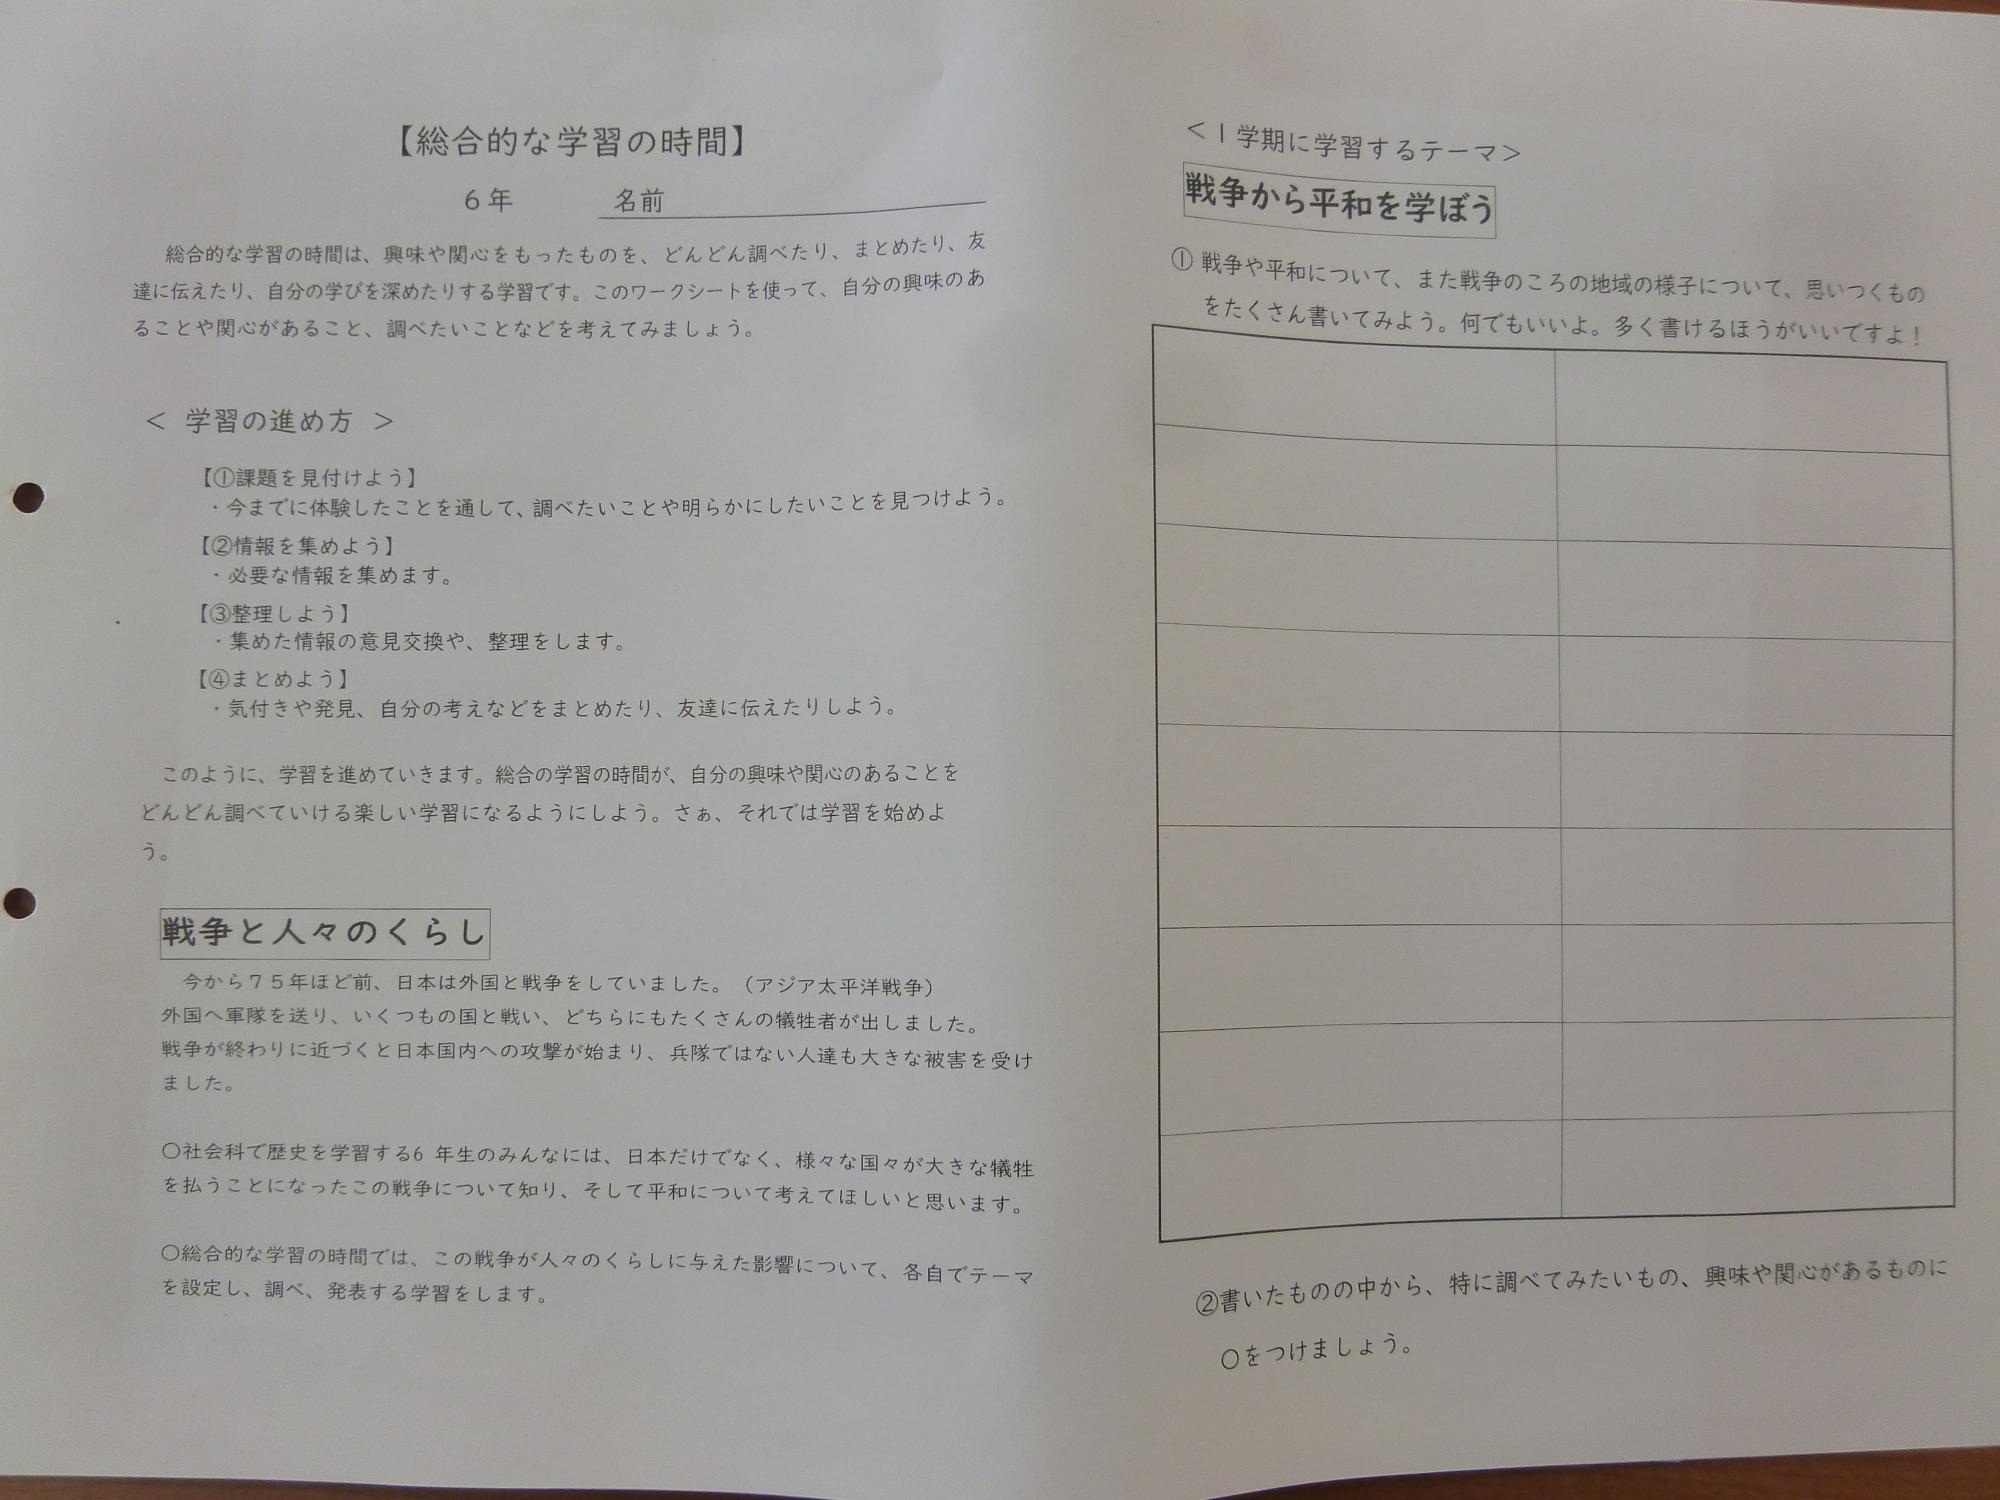 【総合的な学習の時間】
６年　名前
総合的な学習の時間は、興味や関心をもったものを、どんどん調べたり、まとめたり、友
達に伝えたり、自分の学びを深めたりする学習です。このワークシートを使って、自分の興味のあ
ることや関心があること、調べたいことなどを考えてみましょう。
＜ 学習の進め方 ＞
【①課題を見付けよう】
・今までに体験したことを通して、調べたいことや明らかにしたいことを見つけよう。
【②情報を集めよう】
・必要な情報を集めます。
【③整理しよう】
・集めた情報の意見交換や、整理をします。
【④まとめよう】
・気付きや発見、自分の考えなどをまとめたり、友達に伝えたりしよう。
このように、学習を進めていきます。総合の学習の時間が、自分の興味や関心のあることを
どんどん調べていける楽しい学習になるようにしよう。さぁ、それでは学習を始めよ
う。
戦争と人々のくらし
今から７５年ほど前、日本は外国と戦争をしていました。（アジア太平洋戦争）
外国へ軍隊を送り、いくつもの国と戦い、どちらにもたくさんの犠牲者が出しました。
戦争が終わりに近づくと日本国内への攻撃が始まり、兵隊ではない人達も大きな被害を受け
ました。
○社会科で歴史を学習する6 年生のみんなには、日本だけでなく、様々な国々が大きな犠牲
を払うことになったこの戦争について知り、そして平和について考えてほしいと思います。
○総合的な学習の時間では、この戦争が人々のくらしに与えた影響について、各自でテーマ
を設定し、調べ、発表する学習をします。
＜１学期に学習するテーマ＞
戦争から平和を学ぼう
① 戦争や平和について、また戦争のころの地域の様子について、思いつくもの
をたくさん書いてみよう。何でもいいよ。多く書けるほうがいいですよ！
②書いたものの中から、特に調べてみたいもの、興味や関心があるものに
○をつけましょう。